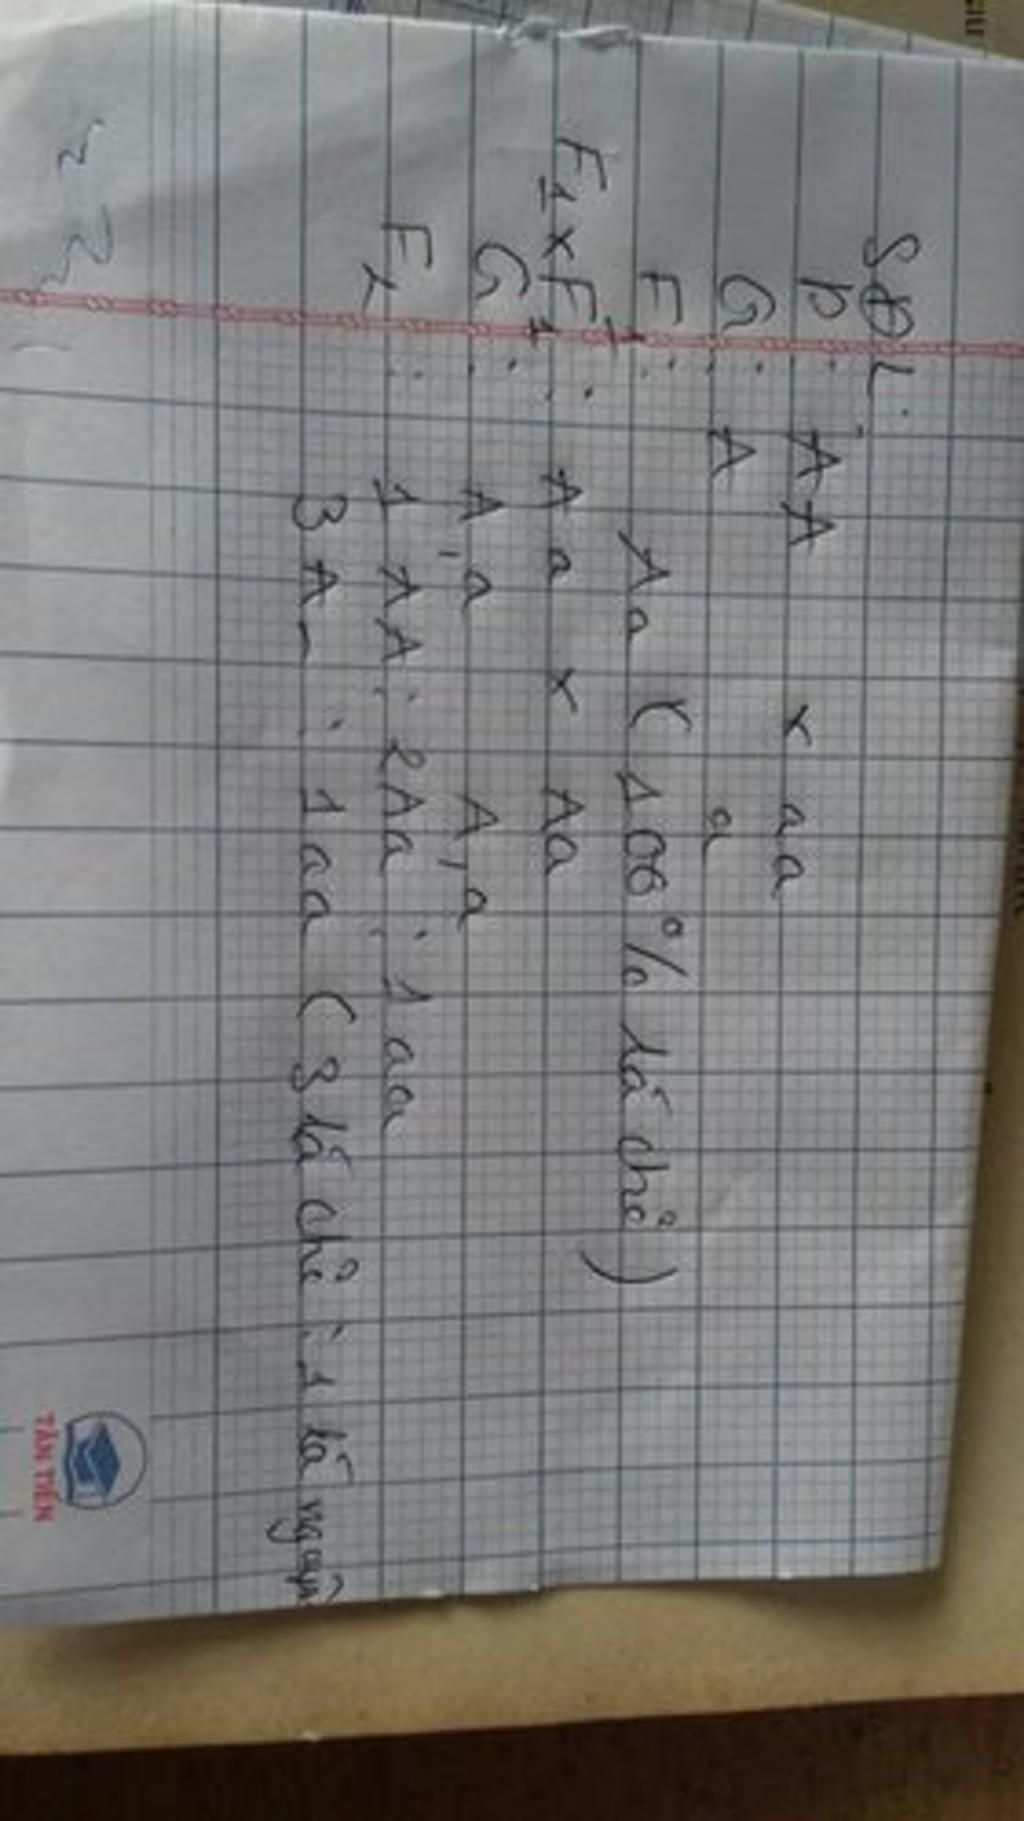 SĐL:
P : AA x aa
G : A a
F1 : Aa (100% lá chẻ)
F1xF1 : Aa x Aa
G : A, a A, a
F2 : 1 AA : 2Aa : 1aa
3 A- : 1aa (3 lá chẻ : 1 lá nguyên
TÂN TIẾN